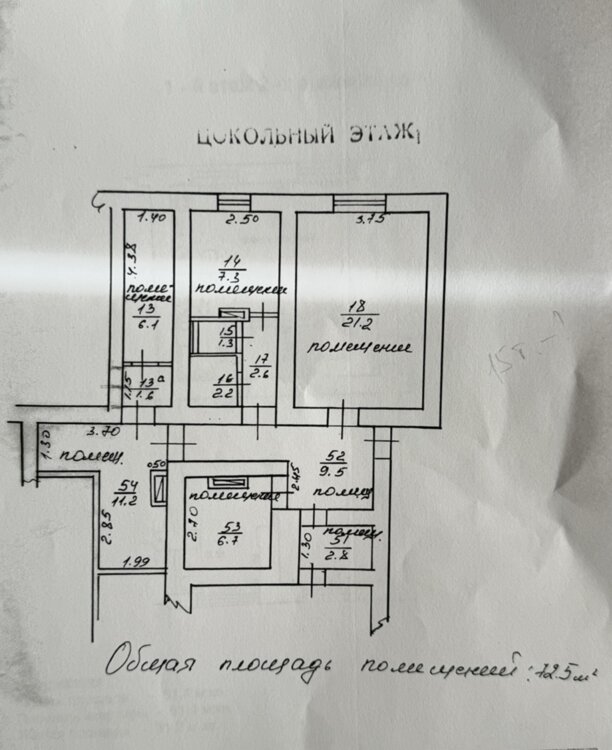 ЦОКОЛЬНЫЙ ЭТАЖ
1.40
2.50
3.75
4.38
14
7.3
помещении
поме-
щение
13
6.1
18
21.2
помещение
15
1.3
17
2.6
16
2.2
13а
1.6
1.15
3.70
1.30
помещ.
0.50
54
11.2
2.85
1.99
помещение
2.70
53
6.7
52
9.5
2.45
помещ
помещ.
51
2.8
1.30
Общая площадь помещений: 72.5 м²